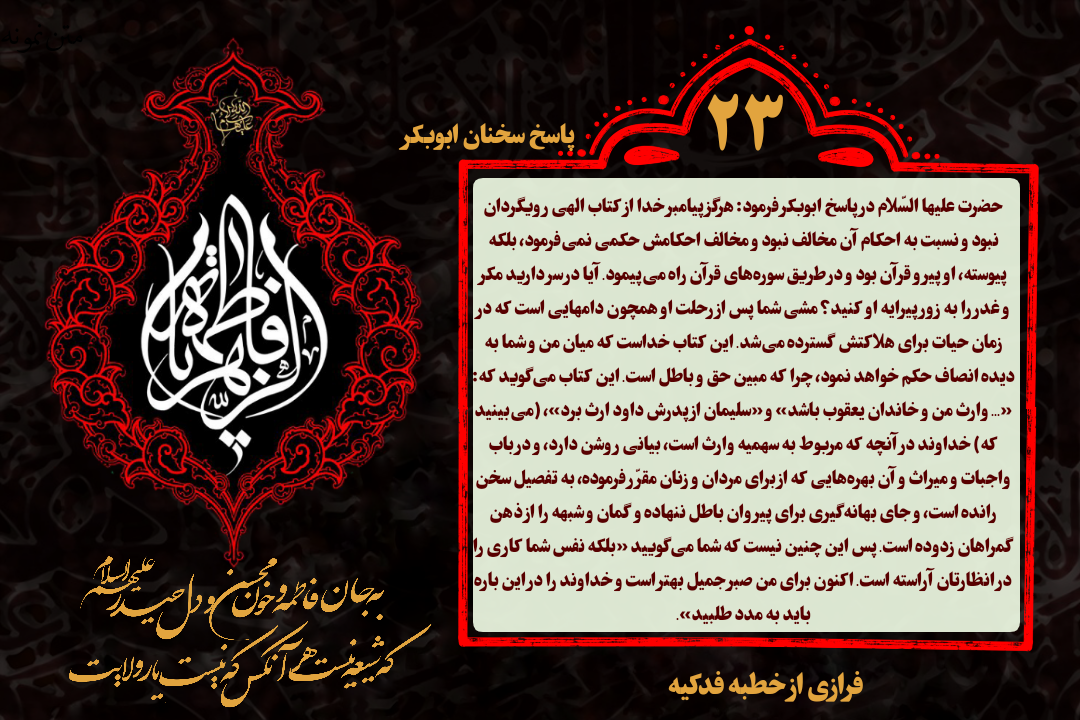 ۲۳
پاسخ سخنان ابوبکر
حضرت علیها السّلام در پاسخ ابوبکر فرمود: هرگز پیامبر خدا از کتاب الهی رویگردان
نبود و نسبت به احکام آن مخالف نبود و مخالف احکامش حکمی نمی‌فرمود، بلکه
پیوسته، او پیرو قرآن بود و در طریق سوره‌های قرآن راه می‌پیمود. آیا در سر دارید مکر
و غدر را به زور پیرایه او کنید؟ مشی شما پس از رحلت او همچون دامهایی است که در
زمان حیات برای هلاکتش گسترده می‌شد. این کتاب خداست که میان من و شما به
دیده انصاف حکم خواهد نمود، چرا که مبین حق و باطل است. این کتاب می‌گوید که:
«... وارث من و خاندان یعقوب باشد» و «سلیمان از پدرش داود ارث برد»، (می بینید
که) خداوند در آنچه که مربوط به سهمیه وارث است، بیانی روشن دارد، و در باب
واجبات و میراث و آن بهره‌هایی که از برای مردان و زنان مقرّر فرموده، به تفصیل سخن
رانده است، و جای بهانه‌گیری برای پیروان باطل ننهاده و گمان و شبهه را از ذهن
گمراهان زدوده است. پس این چنین نیست که شما می‌گویید «بلکه نفس شما کاری را
در انظارتان آراسته است. اکنون برای من صبر جمیل بهتر است و خداوند را در این باره
باید به مدد طلبید».
فرازی از خطبه فدکیه
فاطمة الزهراء
به جان فاطمه و خون محسن و دل حیدر علیهم السلام
که شیعه نیست هر آنکس که نیست یار ولایت